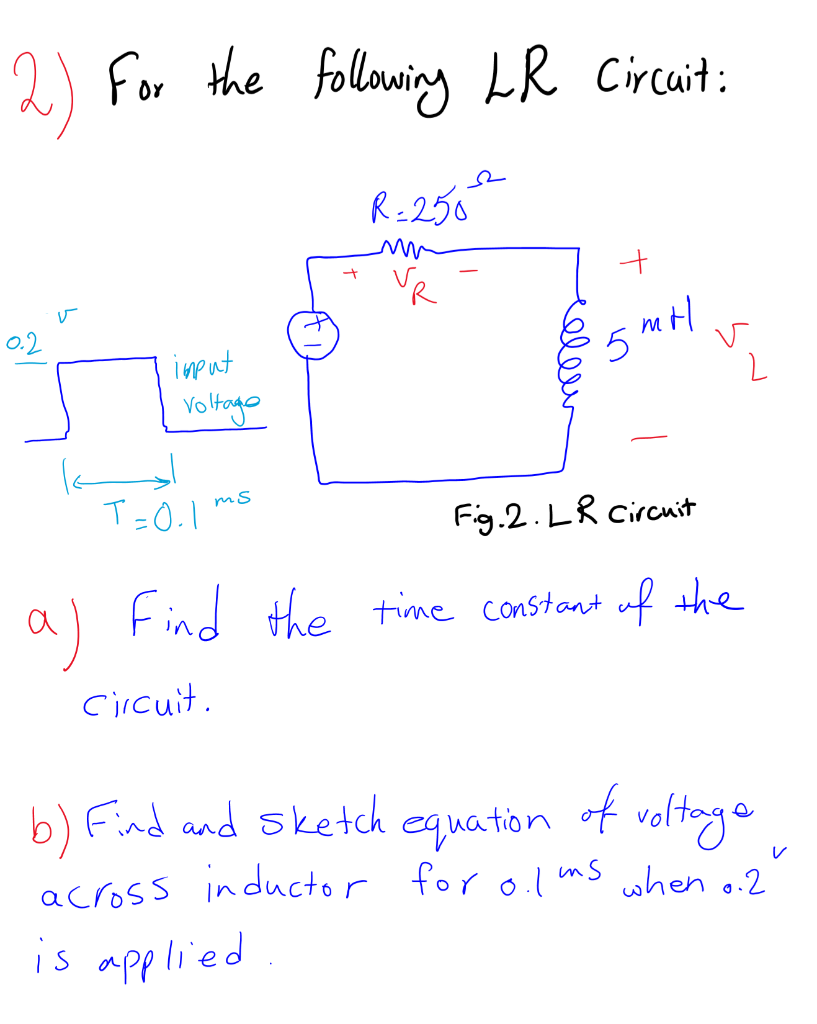 2) For the following LR Circuit:
R=250 Ω
+ VR -
+
0.2 v
+
-
5 mH
VL
input
voltage
-
T=0.1 ms
Fig.2. LR circuit
a) Find the time constant of the
circuit.
b) Find and sketch equation of voltage
across inductor for 0.1 ms when 0.2 v
is applied.